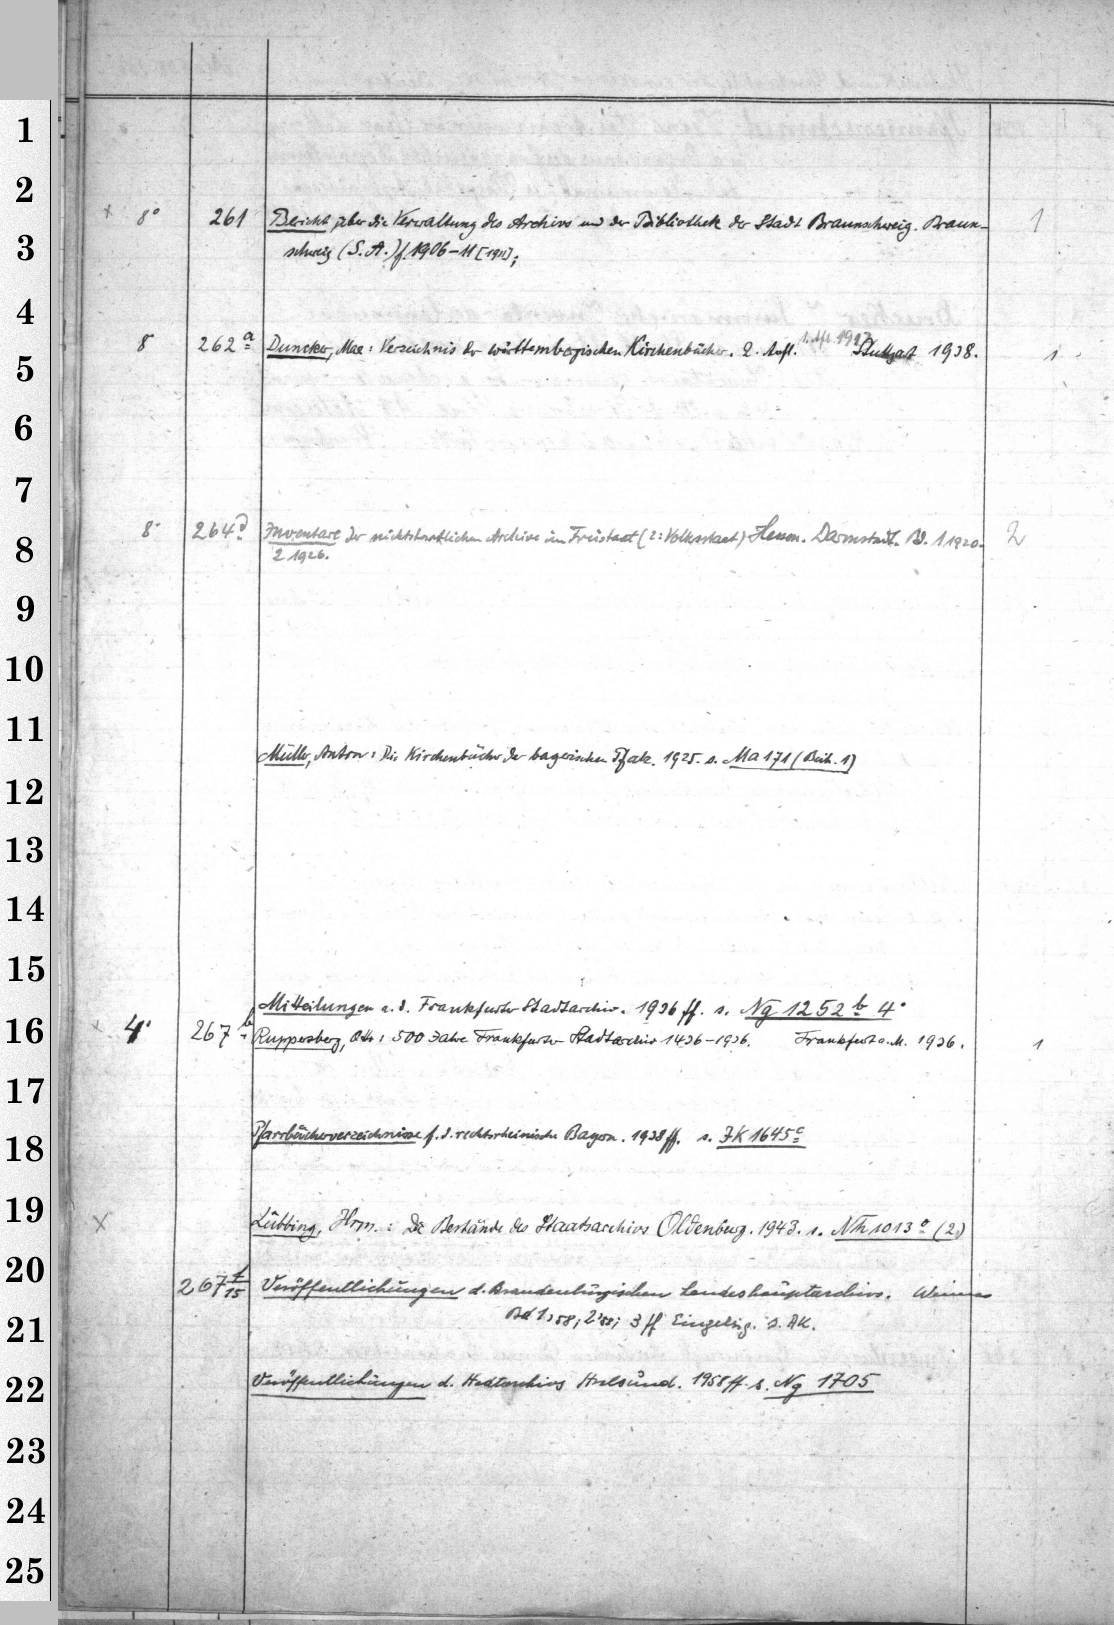 1
2
x 8° 261 Bericht über die Verwaltung des Archivs und der Bibliothek der Stadt Braunschweig. Braun- 1
3
schweig (S. A.) f. 1906-11 [1911];
4
8° 262 a Duncker, Max: Verzeichnis der württembergischen Kirchenbücher. 2. Aufl. 1. Afl. 1912 Stuttgart 1938. 1
5
6
7
8° 264 d Inventare der nichtstaatlichen Archive im Freistaat (2: Volksstaat) Hessen. Darmstadt. Bd. 1 1920. 2
8
2 1926.
9
10
11
Müller, Anton: Die Kirchenbücher der bayerischen Pfalz. 1925. s. Ma 171 (Beih. 1)
12
13
14
15
Mitteilungen a. d. Frankfurter Stadtarchiv. 1936 ff. s. Ng 1252 b 4°
16
x 4° 267 b Ruppersberg, Otto: 500 Jahre Frankfurter Stadtarchiv 1436-1936. Frankfurt a. M. 1936. 1
17
Pfarrbücherverzeichnisse f. d. rechtsrheinische Bayern. 1938 ff. s. ZK 1645 c
18
19
x Lübbing, Hrm.: Die Bestände des Staatsarchivs Oldenburg. 1943. s. Nh 1013 a (2)
20
267 f/15 Veröffentlichungen d. Brandenburgischen Landeshauptarchivs. Weimar
21
Bd 1,58; 2,58; 3 ff Einzeltig. s. AK.
22
Veröffentlichungen d. Stadtarchivs Stralsund. 1958 ff. s. Ng 1705
23
24
25